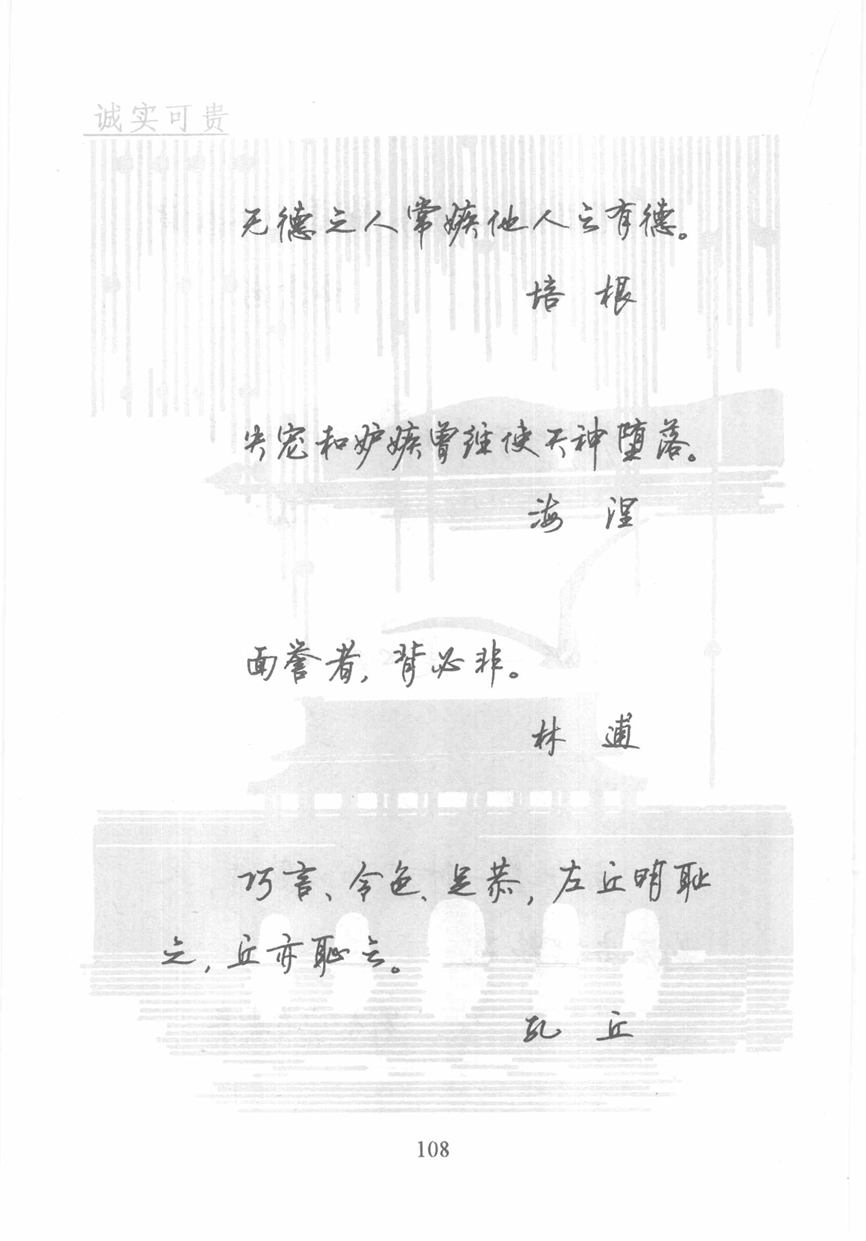 诚实可贵
无德之人常嫉他人之有德。
培根
失宠和妒嫉曾经使天神堕落。
海涅
面誉者，背必非。
林逋
巧言、令色、足恭，左丘明耻
之，丘亦耻之。
孔丘
108